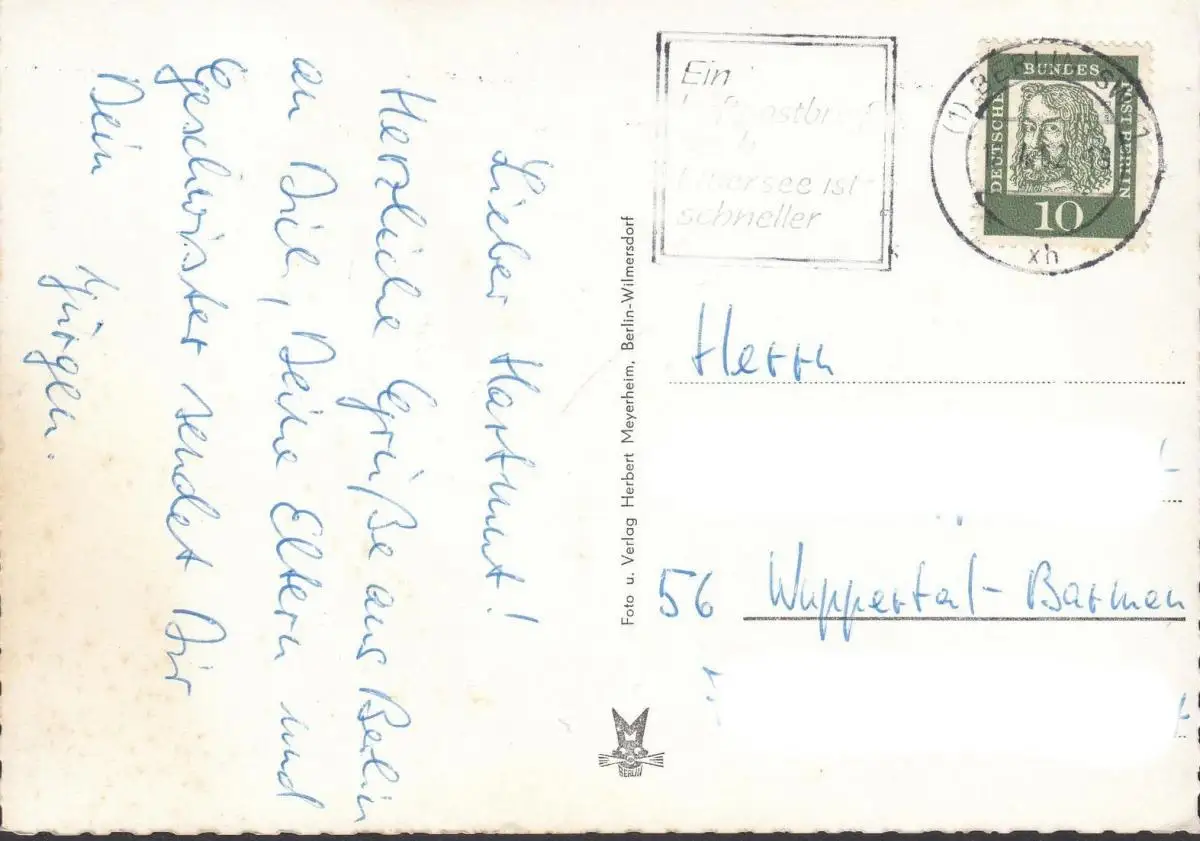 Lieber Hartmut!
Herzliche Grüße aus Berlin
an Dich, Deine Eltern und
Geschwister sendet Dir
Dein Jürgen.
Foto u. Verlag Herbert Meyerheim, Berlin-Wilmersdorf
BERLIN
Ein
Übersee ist
schneller
(1) BERLIN SW
xh
DEUTSCHE BUNDESPOST BERLIN
10
Herrn
56 Wuppertal-Barmen